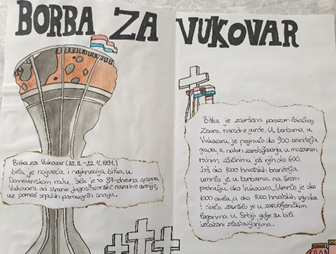 BORBA ZA VUKOVAR
Bitka za Vukovar (25. 8. - 22. 11. 1991.)
bila je najveća i najkrvavija bitka u
Domovinskom ratu. Bila je to 87-dnevna opsada
Vukovara od strane jugoslavenske narodne armije,
uz pomoć srpskih paravojnih snaga.
Bitka je završena porazom
Zbora narodne garde. U borbama u
Vukovaru je poginulo oko 300 branitelja
grada, a nakon zauzimanja, u masovnim
ratnim zločinima još njih oko 600.
Još oko 1000 hrvatskih branitelja
umrlo je u borbama na širem
području oko Vukovara. Umrlo je oko
1000 civila, a oko 4000 hrvatskih vojnika
i civila završilo je u zarobljeničkim
logorima u Srbiji gdje su bili
izloženi zlostavljanjima.